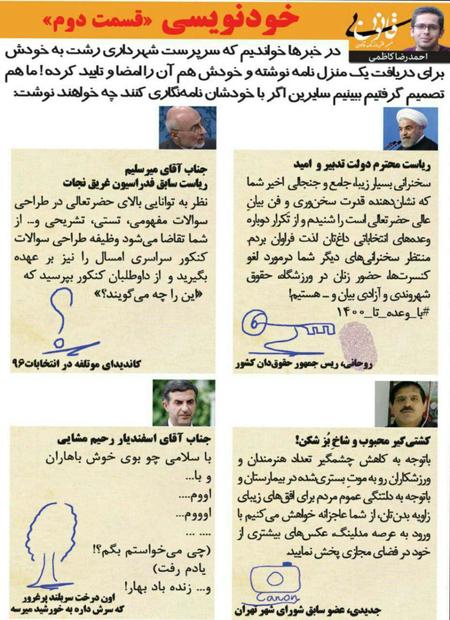 خودنویسی «قسمت دوم»
قانون
احمدرضا کاظمی
در خبرها خواندیم که سرپرست شهرداری رشت به خودش
برای دریافت یک منزل نامه نوشته و خودش هم آن را امضا و تایید کرده! ما هم
تصمیم گرفتیم ببینیم سایرین اگر با خودشان نامه‌نگاری کنند چه خواهند نوشت:
ریاست محترم دولت تدبیر و امید
سخنرانی بسیار زیبا، جامع و جنجالی اخیر شما
که نشان‌دهنده قدرت سخن‌وری و فن بیان
عالی حضرتعالی است را شنیدم و از تکرار دوباره
وعده‌های انتخاباتی داغ‌تان لذت فراوان بردم.
منتظر سخنرانی‌های دیگر شما درمورد لغو
کنسرت‌ها، حضور زنان در ورزشگاه، حقوق
شهروندی و آزادی بیان و ... هستیم!
#با_وعده_تا_۱۴۰۰
روحانی، ریس جمهور حقوق‌دان کشور
جناب آقای میرسلیم
ریاست سابق فدراسیون غریق نجات
نظر به توانایی بالای حضرتعالی در طراحی
سوالات مفهومی، تستی، تشریحی و... از
شما تقاضا می‌شود وظیفه طراحی سوالات
کنکور سراسری امسال را نیز بر عهده
بگیرید و از داوطلبان کنکور بپرسید که
«این را چه می‌گویند؟»
کاندیدای موتلفه در انتخابات۹۶
کشتی‌گیر محبوب و شاخ بُز شکن!
باتوجه به کاهش چشمگیر تعداد هنرمندان و
ورزشکاران رو به موت بستری‌شده در بیمارستان و
باتوجه به دلتنگی عموم مردم برای افق‌های زیبای
زاویه بدن‌تان، از شما عاجزانه خواهش می‌کنیم با
ورود به عرصه مدلینگ، عکس‌های بیشتری از
خود در فضای مجازی پخش نمایید.
Canon
جدیدی، عضو سابق شورای شهر تهران
جناب آقای اسفندیار رحیم مشایی
با سلامی چو بوی خوش باهاران
و با...
اووم....
اوووم....
.... ...
(چی می‌خواستم بگم؟!
یادم رفت)
و... زنده باد بهار!
اون درخت سربلند پرغرور
که سرش داره به خورشید میرسه